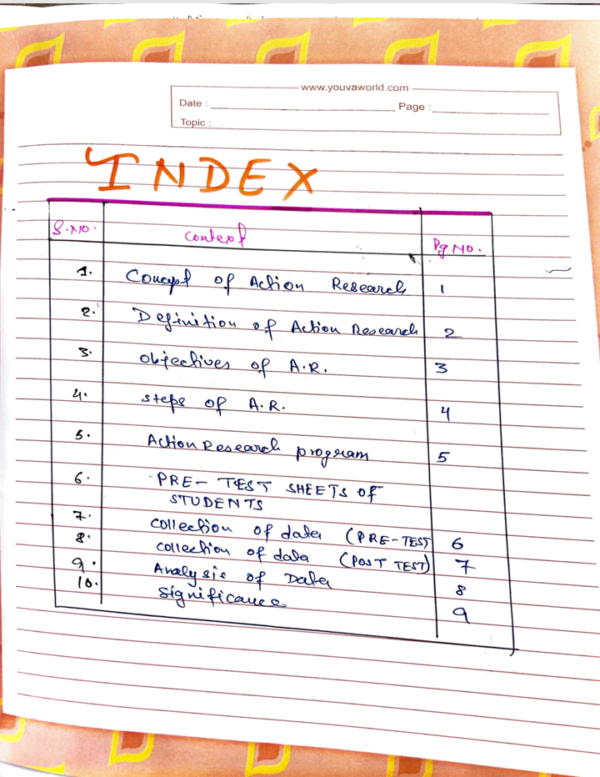 www.youvaworld.com
Date : Page :
Topic :
INDEX
S.NO. Context Pg No.
1. Concept of Action Research 1
2. Definition of Action Research 2
3. objectives of A.R. 3
4. steps of A.R. 4
5. Action Research program 5
6. PRE-TEST SHEETS OF
STUDENTS
7. Collection of data (PRE-TEST) 6
8. collection of data (POST TEST) 7
9. Analysis of Data 8
10. Significance 9